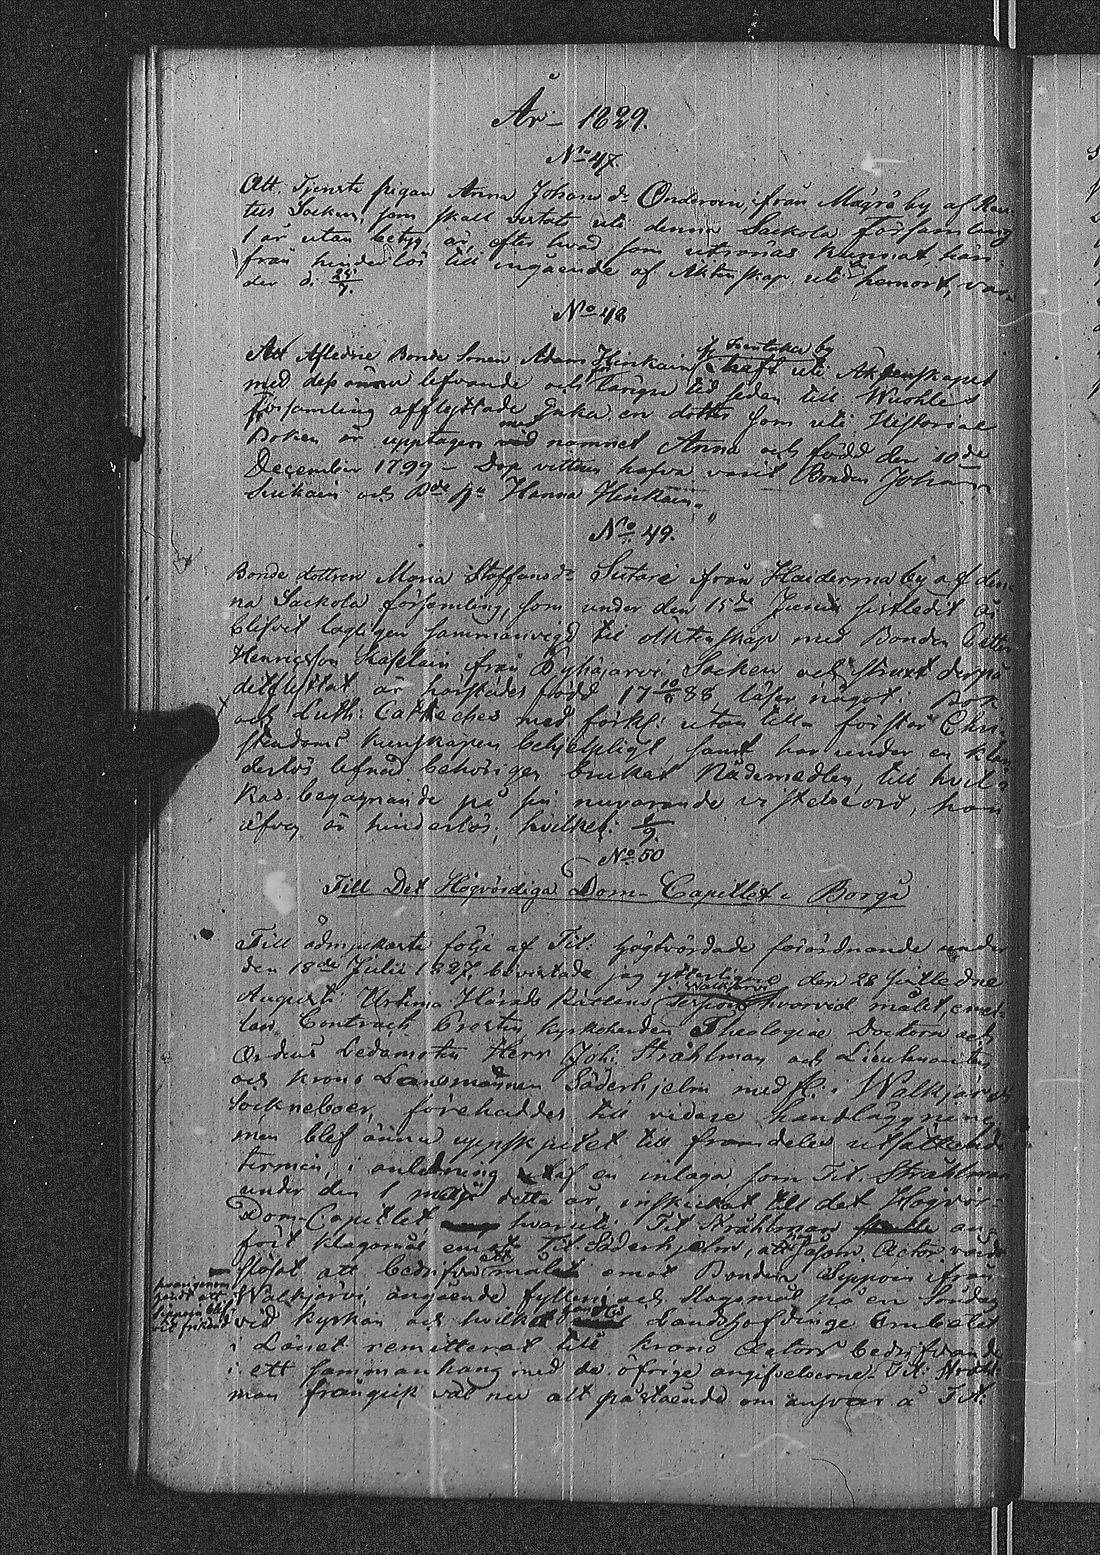 År 1829.
No 47.
Att Tjenste pigan Anna Johans dr Onderoin, från Mäyrä by af Rau-
tus Socken, som skall vistats uti denna Sackola Församling
1 år utan betyg, är, efter hvad som utrönas kunnat här
från hinderlös till ingående af Äktenskap uti hemort, var-
der d. 25/7.
No 48
Att Afledne Bonde Sonen Adam Hinkain, haft uti Äktenskapet
med dess ännu lefvande och längre tid sedan till Wuohles
församling afflyttade Enka en dotter som uti Historiae
Boken är upptagen med namnet Anna och född den 10de
December 1799 – Dop vittnen hafva varit Bonden Johan
och Bde Hu Hanna Hinkain.
No 49.
Bonde dottren Maria Staffans dr Sutari från Haiderma by af den-
na Sackola församling, som under den 15de Junii sistledit är
blifvit lagligen sammanvigd til äktenskap med Bonden Petter
Henricsson från Pyhäjärvi Socken och straxt derpå
ditflyttat är härstädes född 17 10/6 88 läser något i Bok
och Luth: Catteches med förkl: utan till förstår Chri-
stendoms kunskapen behjelpligt, samt har under en klan-
derlös lefnad behörigen brukat Nådemedlen, till hvil-
kas begagnande på sin nuvarande vistelse ord, hon
äfven är hinderlös; hvilket.
No 50
Till Det Högvördiga Dom-Capitlet i Borgå
Till ödmjukaste följe af Tit: högtvördade förordnande under
den 18de Julii 1827 bevistade jag ytterligare den 28 sistledne
Augusti Häradsrättens hvarvid målet, emel-
lan Contract Prosten kyrkoherden Theologiae Doctorn och
Ordens Ledamoten Herr Joh: Stråhlman och Lieutenanten
och krono Länsmannen Söderhjelm med fl. i Walkjärvi
Socknebor, förehaddes till vidare handläggning,
men blef ännu uppskjutet till framdeles utsättande
termin, i anledning af en inlaga som Tit. Stråhlman
under den 1 detta år, inskickat till det Högvör:
Dom-Capitlet hvaruti Tit Stråhlman an-
fört klagomål emot Tit. Söderhjelm, att såsom Actor
att bedrifva målet emot Bonden Seppoin från
Walkjärvi, angående fylleri och slagsmål på en Söndag
vid kyrkan och hvilket Landshöfdinge Embetet
i Länet remitterat till krono Actors bedrifvande
i ett sammanhang med de öfrige angifvelserne. Tit: Stråhl-
man frångick väl nu allt påstående om ansvar å Tit.